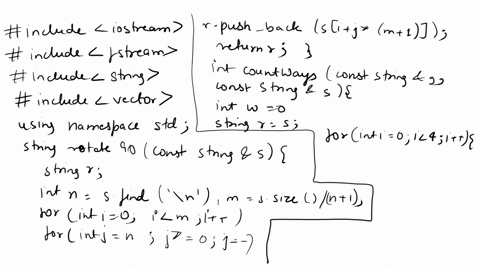 #include <iostream>
#include <fstream>
#include <string>
#include <vector>
using namespace std;
string rotate 90 (const string & s) {
string r;
int n = s.find ('\n'), m = s.size ()/(n+1),
for (int i=0; i<m; i++)
for (int j=n ; j>=0; j--)
r.push_back (s[i+j*(m+1)]);
return r; }
int countWays (const string &
const string & s){
int w=0
string r=s;
for(int i=0; i<4; i++){